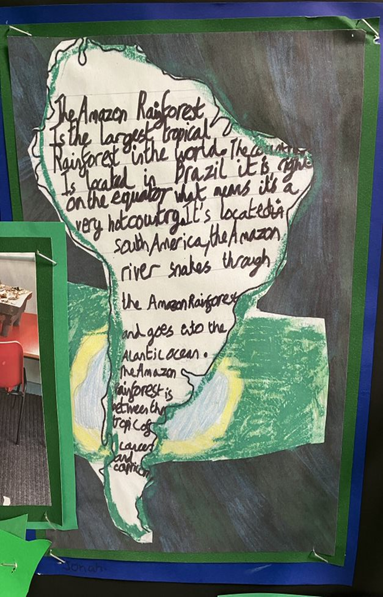 The Amazon Rainforest
Is the largest tropical
Rainforest in the world. The country
Is located in Brazil it is right
on the equator what means it's a
very hot country. It's located in
south America, the Amazon
river snakes through
the Amazon Rainforest
and goes into the
Atlantic ocean.
The Amazon
rainforest is
between the
tropic of
cancer
and
capricorn